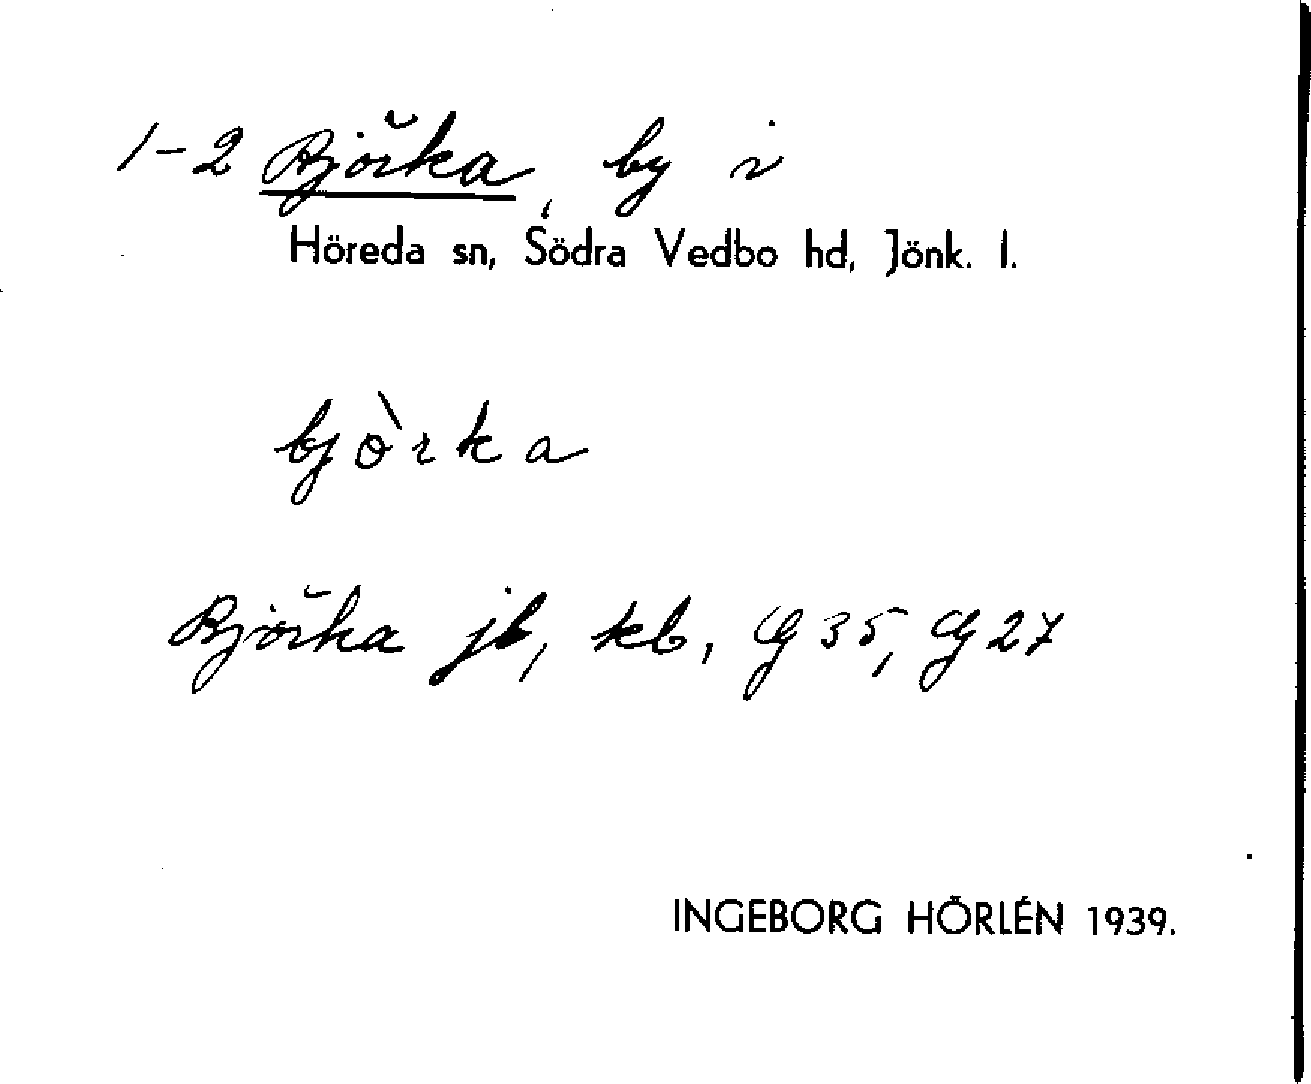 1-2 Björka, by i
Höreda sn, Södra Vedbo hd, Jönk. l.
bjòrka
Björka jb, kb, G 35, G 27
INGEBORG HÖRLÉN 1939.